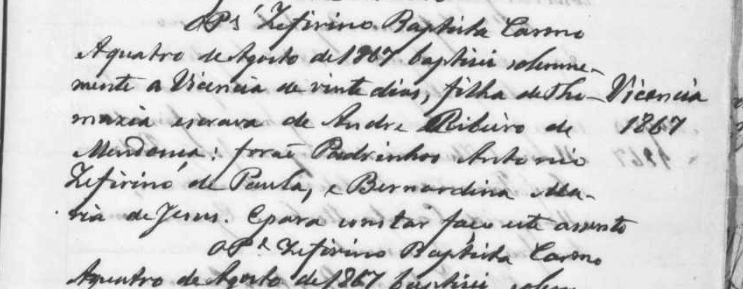 O Pe. Zefirino Baptista Carmo
Aquatro de Agosto de 1867 baptisei solemne-
mente a Vicencia de vinte dias, filha de Tho-
mazia escrava de Andre Ribeiro de
Mendonça: forão Padrinhos Antonio
Zefirino de Paula, e Bernardina Ma-
ria de Jesus. E para constar faço este assento
O Pe. Zefirino Baptista Carmo
Aquatro de Agosto de 1867 baptisei solem
Vicencia
1867